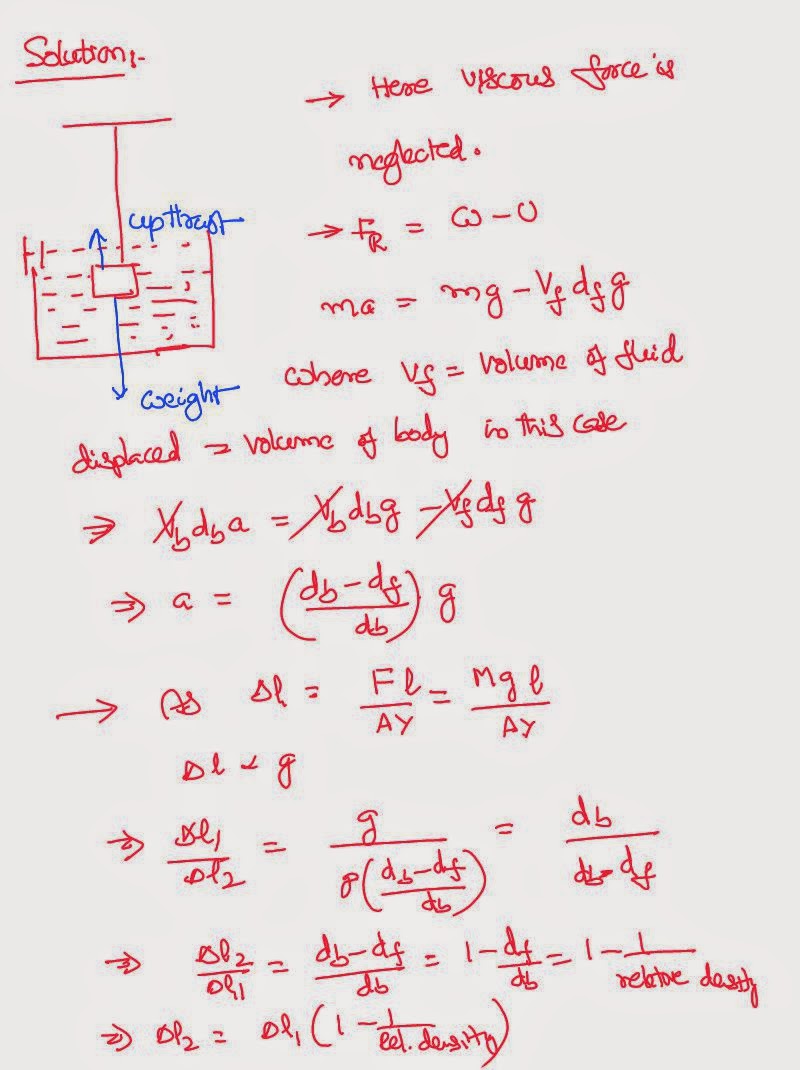 Solution:-
→ Here viscous force is
neglected.
upthrust
→ F_R = W - U
ma = mg - V_f d_f g
weight
where V_f = volume of fluid
displaced = volume of body in this case
⇒ V_b d_b a = V_b d_b g - V_f d_f g
⇒ a = ((d_b - d_f)/d_b) g
→ As Δl = Fl/AY = Mgl/AY
Δl ∝ g
⇒ Δl_1/Δl_2 = g/(g((d_b - d_f)/d_b)) = d_b/(d_b - d_f)
⇒ Δl_2/Δl_1 = (d_b - d_f)/d_b = 1 - d_f/d_b = 1 - 1/relative density
⇒ Δl_2 = Δl_1 (1 - 1/Rel. density)